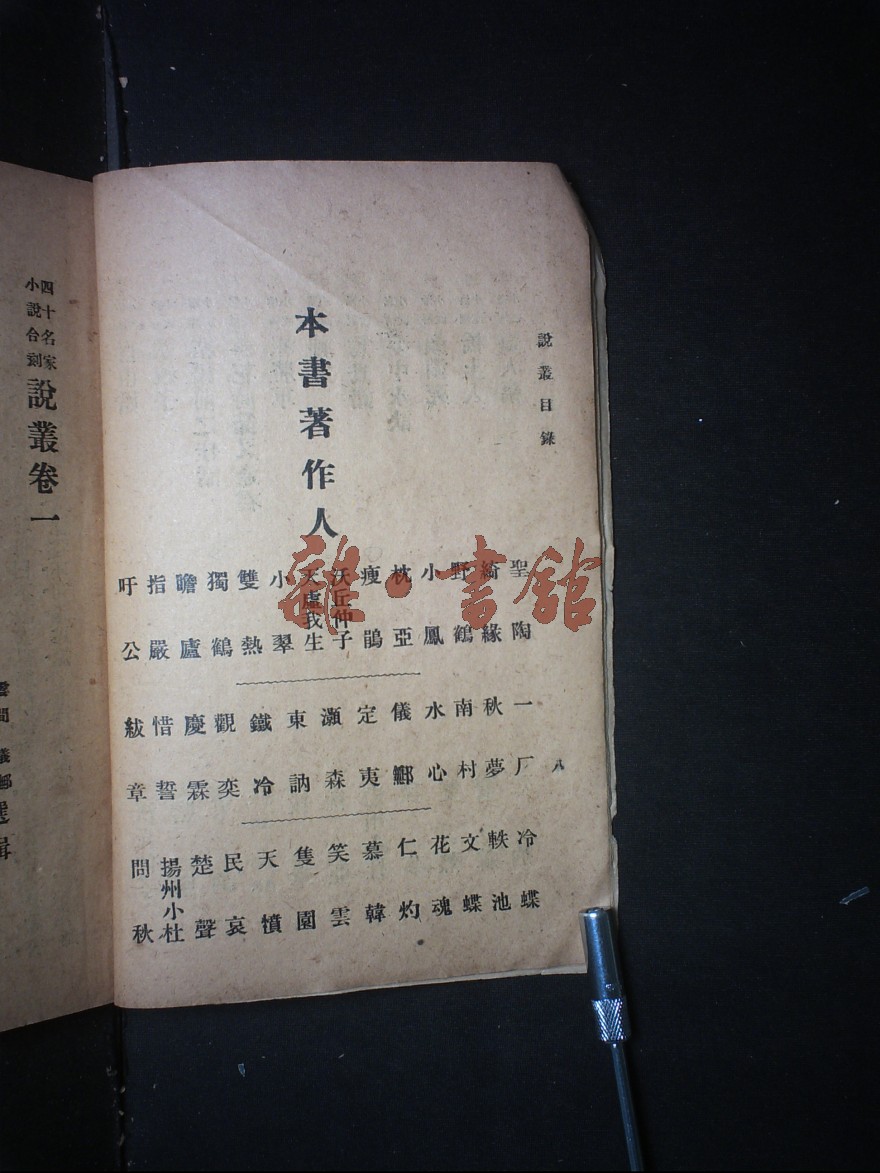 說叢目錄
八
本書著作人
聖陶
綺緣
野鶴
小鳳
枕亞
瘦鵑
沃丘仲子
天虛我生
小翠
雙熱
獨鶴
瞻廬
指嚴
吁公
一厂
秋夢
南村
水心
儀鄦
定夷
灝森
東訥
鐵冷
觀奕
慶霖
惜誓
紱章
冷蝶
軼池
文蝶
花魂
仁灼
慕韓
笑雲
隻園
天憤
民哀
楚聲
揚州小杜
問秋
四十名家
小說合刻
說叢卷一
雲間 儀鄦選輯
雜·書館